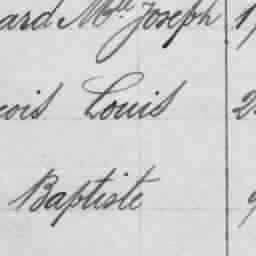 ard Mell Joseph 1
cois Louis 2
Baptiste